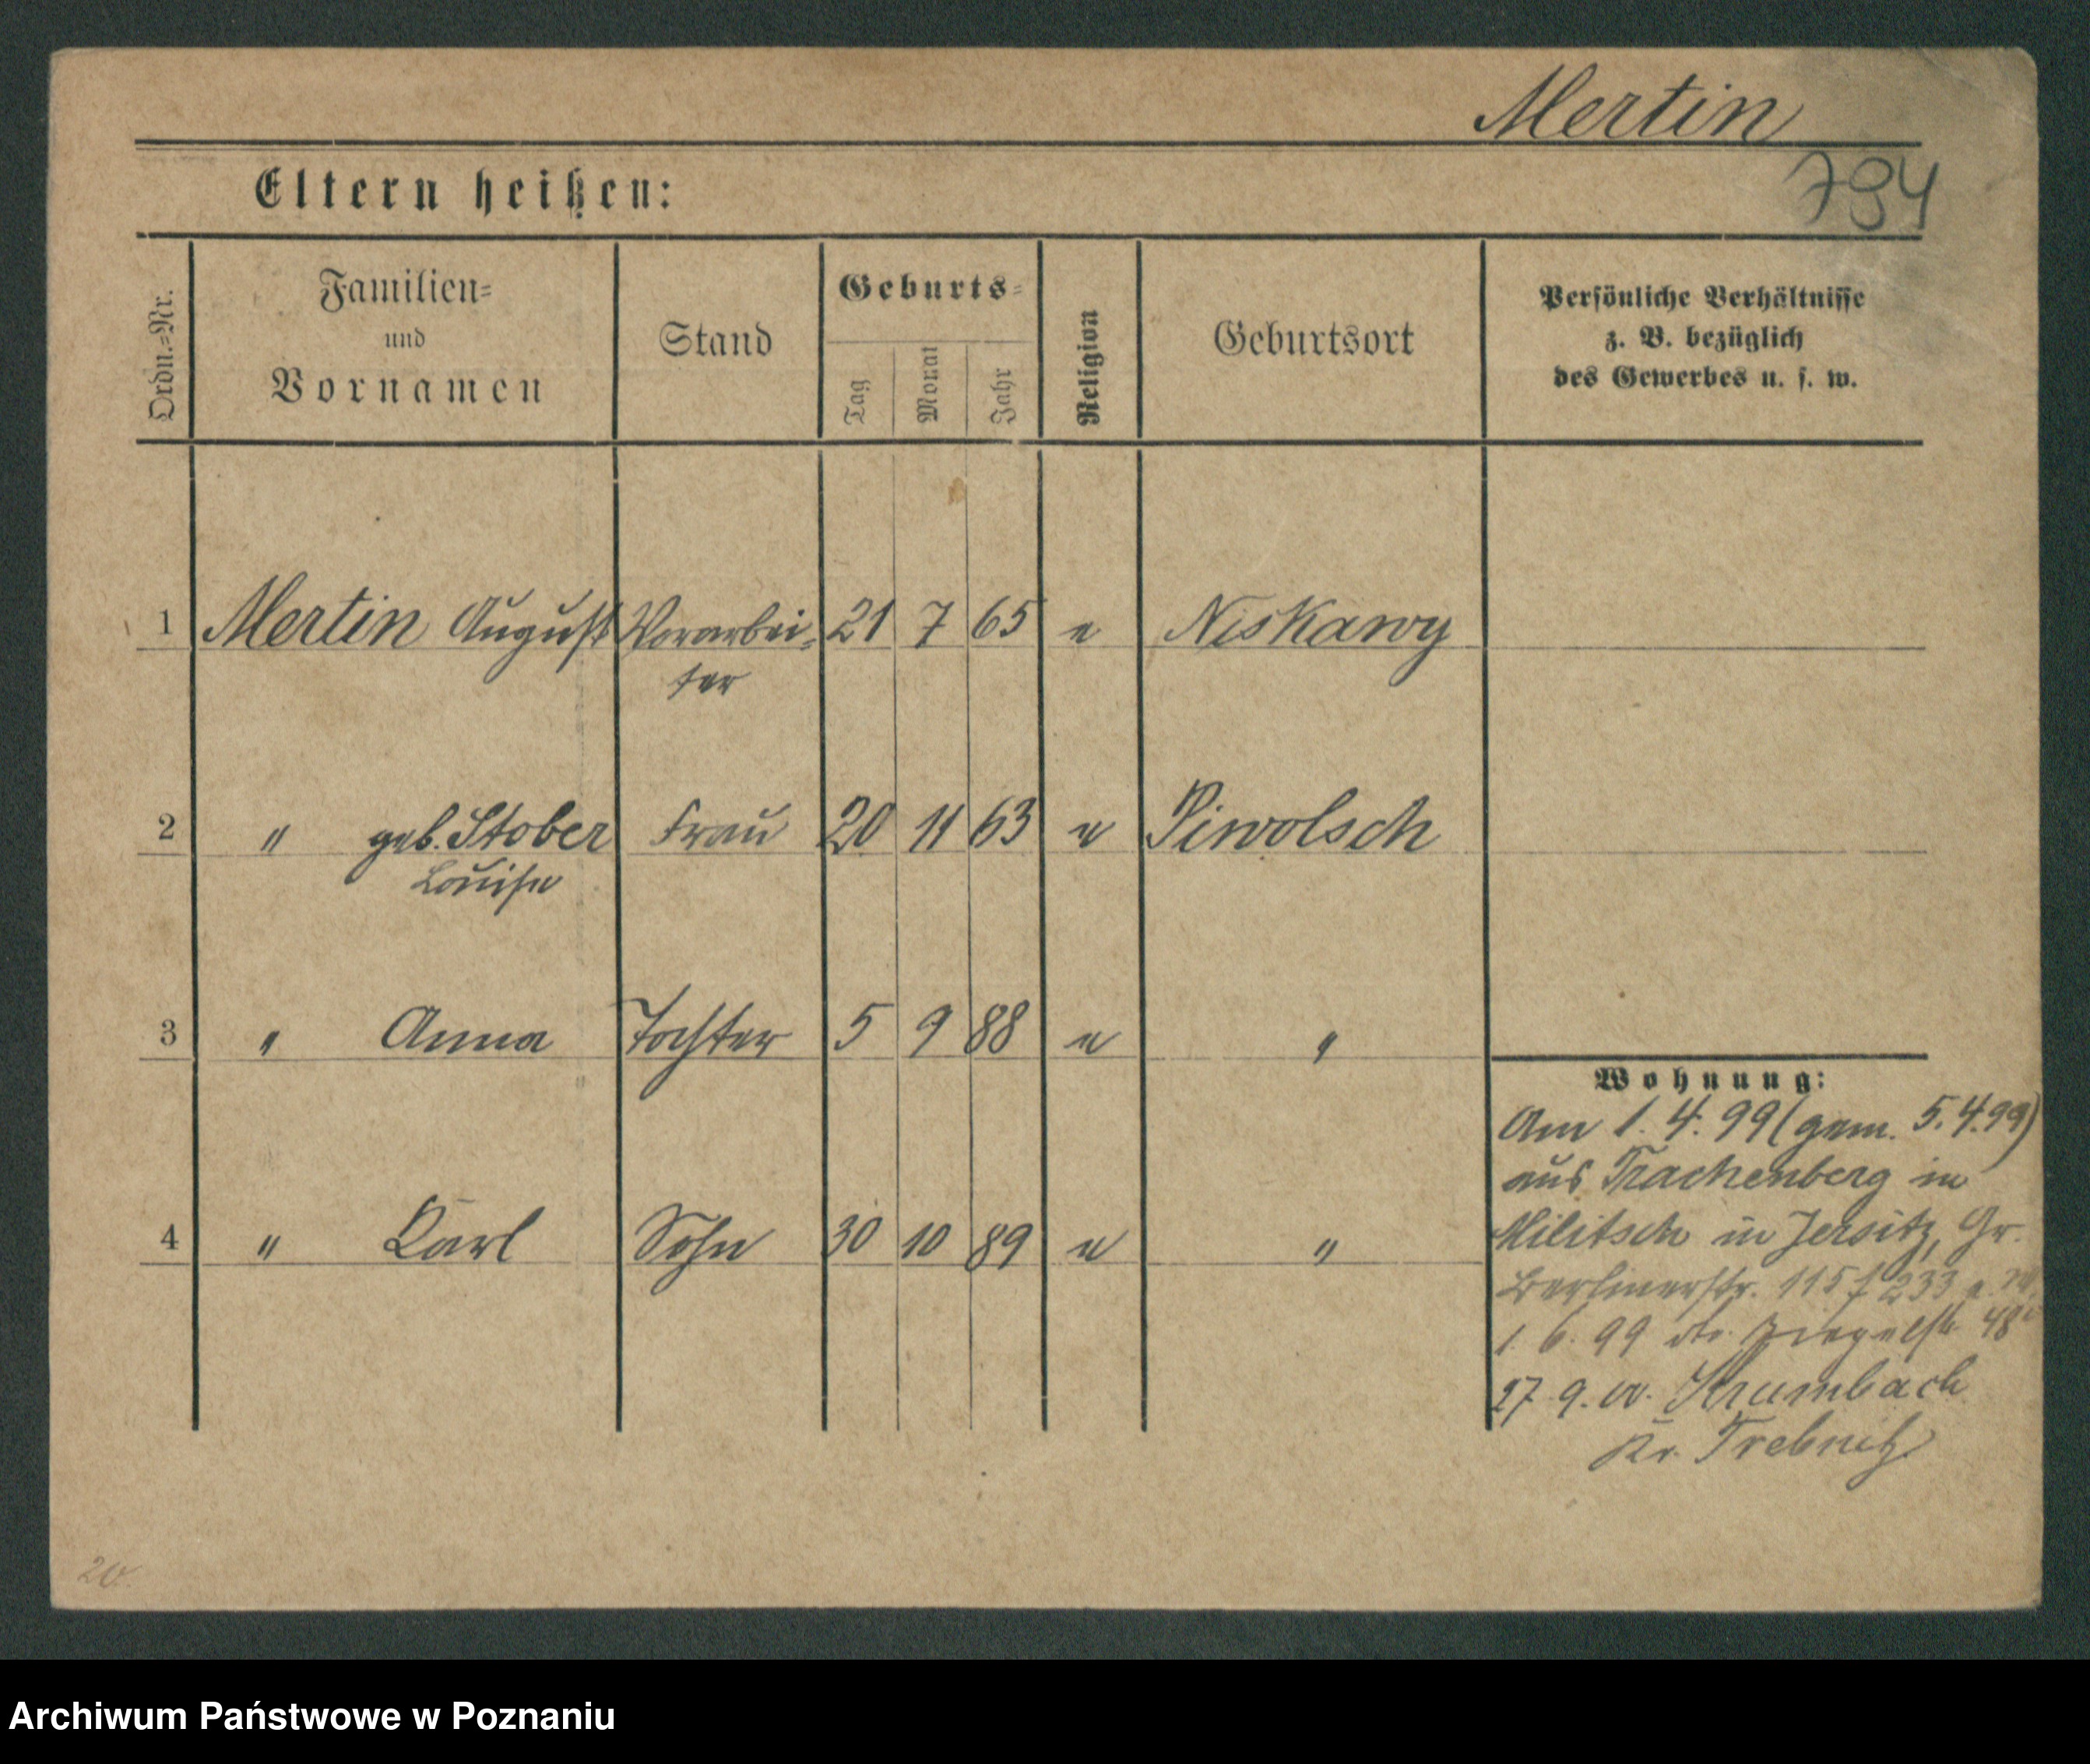 Mertin
794
Eltern heißen:
Ordn.-Nr.
Familien-
und
Vornamen
Stand
Geburts-
Tag
Monat
Jahr
Religion
Geburtsort
Persönliche Verhältnisse
z. B. bezüglich
des Gewerbes u. s. w.
1 Mertin August Vorarbei- 21 7 65 e Niskawy
ter
2 " geb. Stober Frau 20 11 63 e Piwolsch
Louise
3 " Anna Tochter 5 9 88 e "
Wohnung:
Am 1. 4. 99 (gem. 5.4.99)
aus Trachenberg in
Militsch in Jersitz, Gr.
4 " Carl Sohn 30 10 89 e "
Berlinerstr. 115 f 233
1. 6. 99 Ziegelstr. 48
27. 9. 00. Krumbach
Kr. Trebnitz
20.
Archiwum Państwowe w Poznaniu